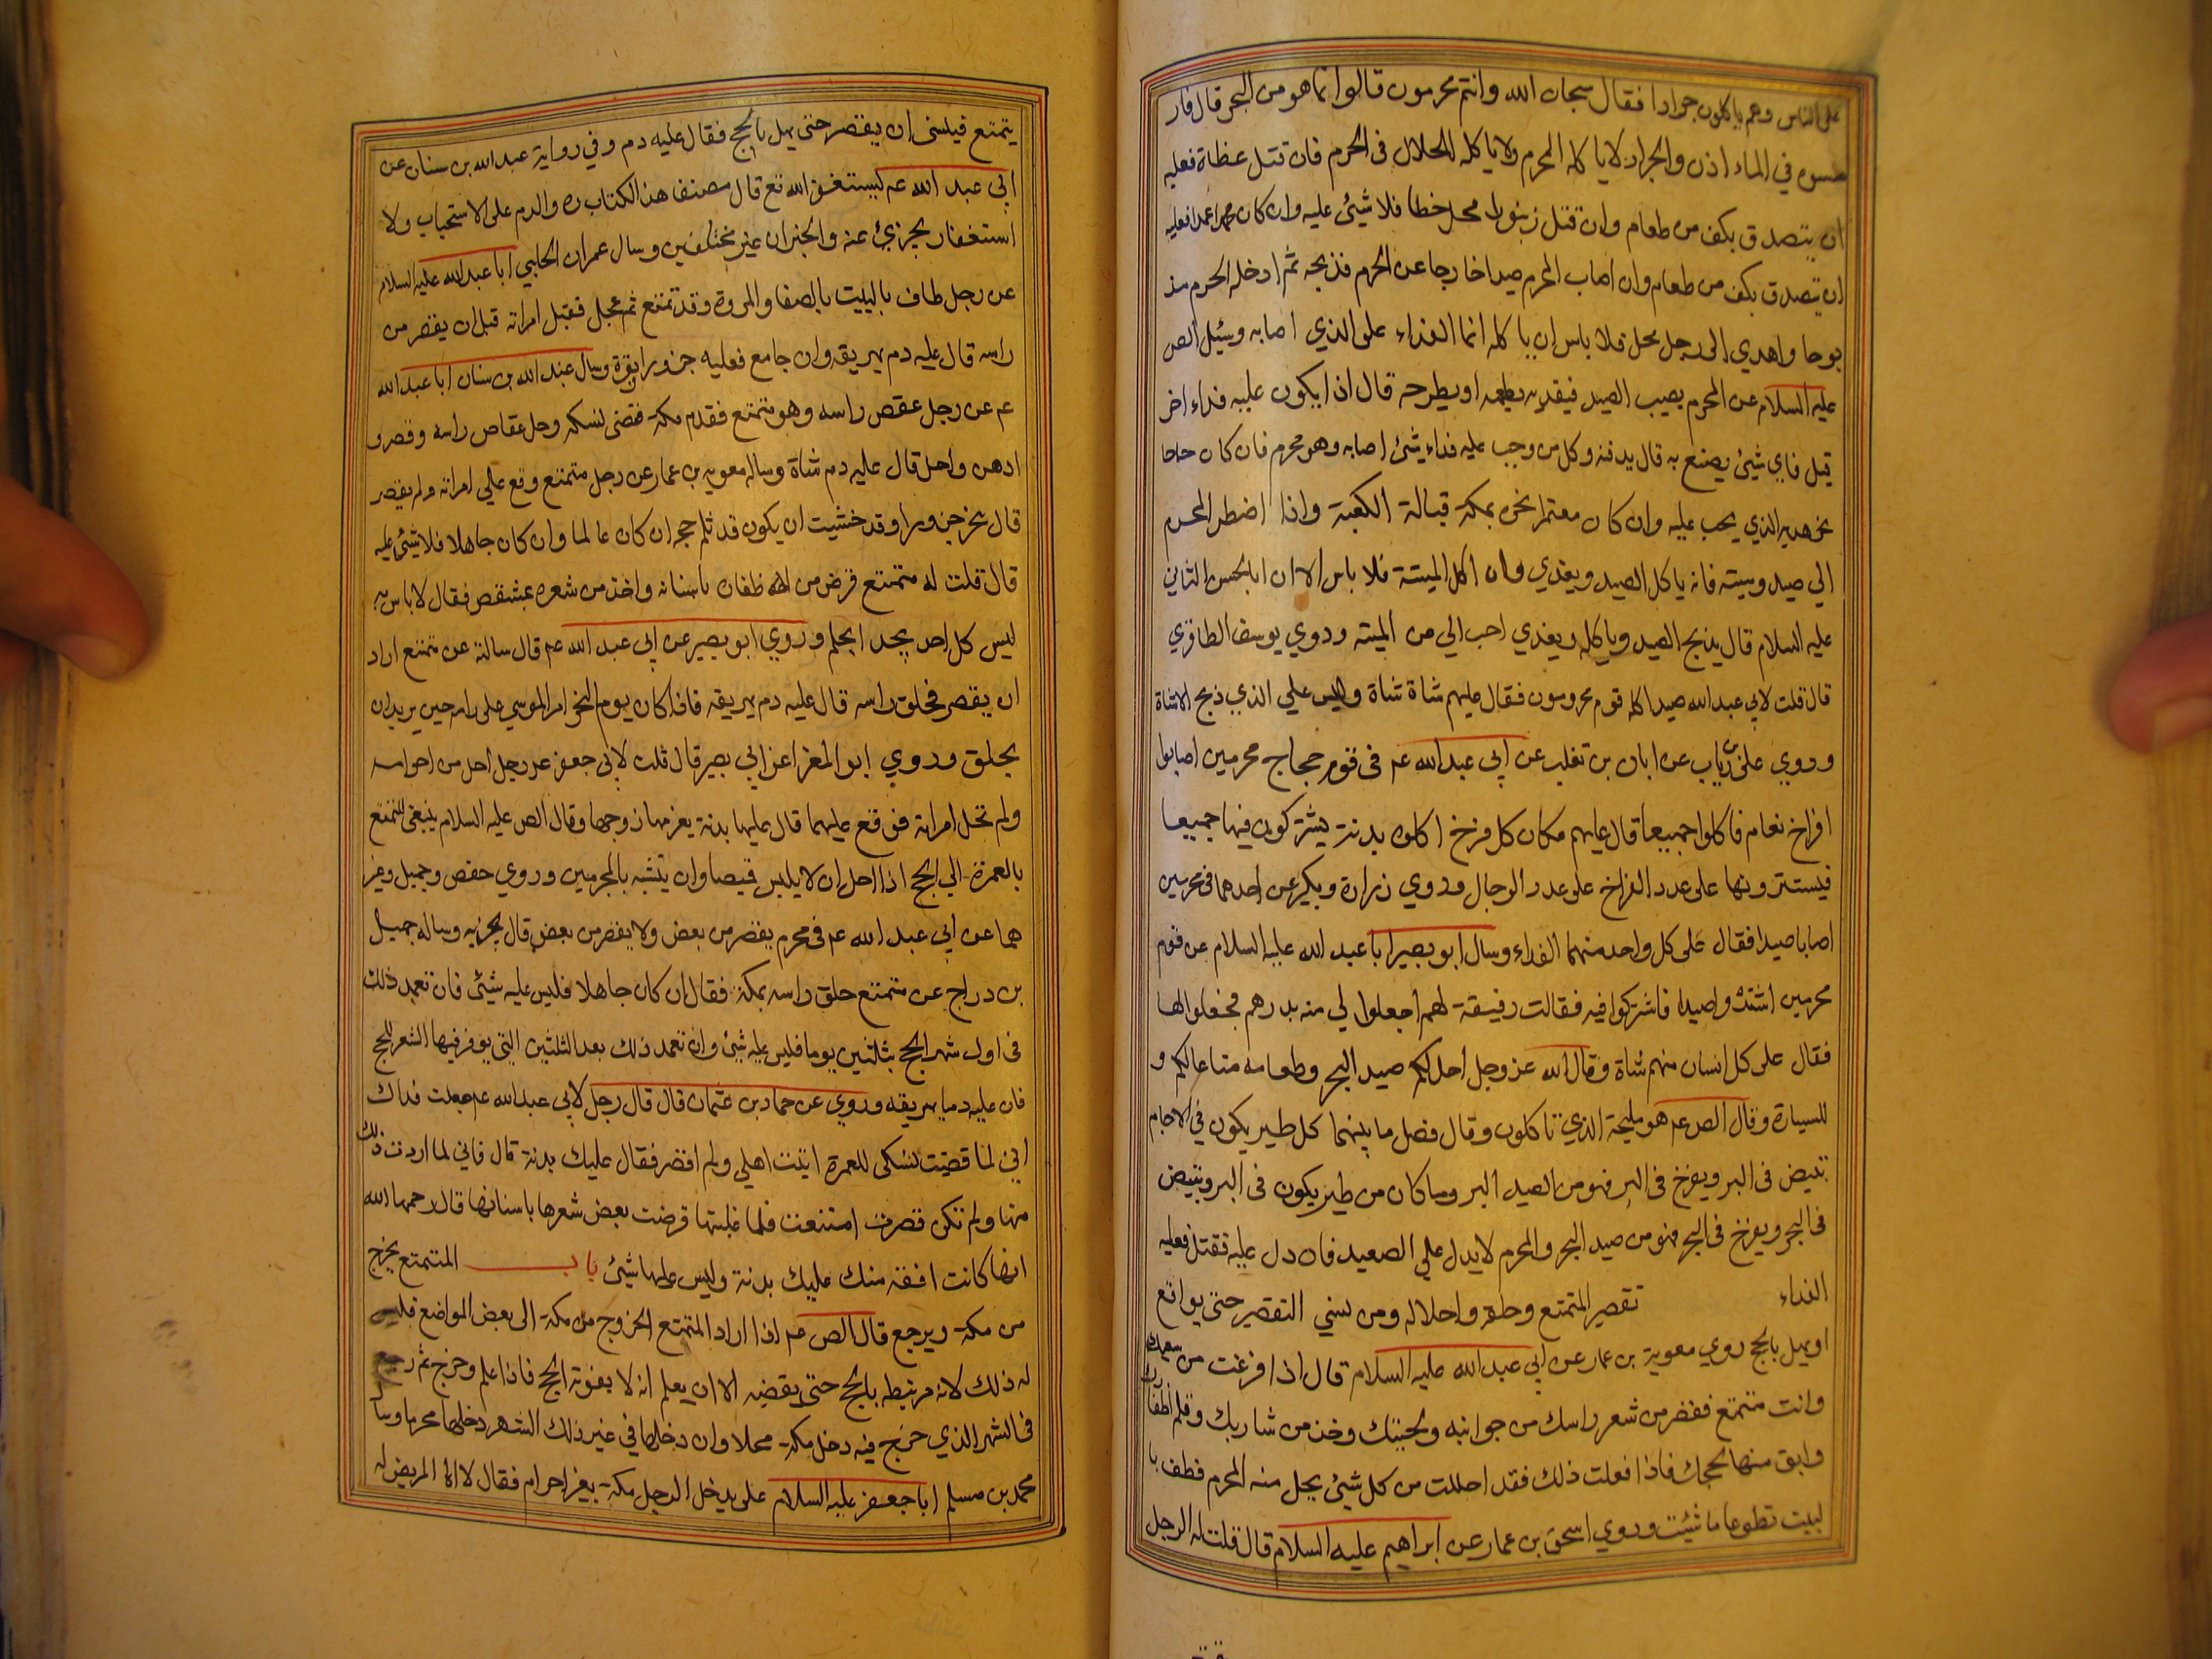 على الناس وهم ياكلون جرادا فقال سبحان الله وانتم محرمون قالوا انما هو من البحر قال فار
مسوه في الماء اذن والجراد لا ياكله المحرم ولا ياكله الحلال في الحرم فان قتل عظاة فعليه
ان يتصدق بكف من طعام وان قتل زنبورا خطا فلا شيئ عليه وان كان عمدا فعليه
ان يتصدق بكف من طعام وان اصاب المحرم صيدا خارجا عن الحرم فذبحه ثم ادخله الحرم مذ
بوحا واهدي الى رجل محل فلا باس ان ياكله انما الفداء على الذي اصابه وسئل الص
عليه السلام عن المحرم يصيب الصيد فيفديه يطعمه او يطرحه قال اذا يكون عليه فداء اخر
قيل فاي شيئ يصنع به قال يدفنه وكل من وجب عليه فداء شيئ اصابه وهو محرم فان كان حاجا
نحر هديه الذي يجب عليه وان كان معتمرا نحره بمكة قبالة الكعبة واذا اضطر المحرم
الي صيد وميتة فانه ياكل الصيد ويفدي وان اكل الميتة فلا باس الا ان ابا الحسن الثاني
عليه السلام قال يذبح الصيد وياكله ويفدي احب الي من الميته وروي يوسف الطاطري
قال قلت لابي عبد الله صيد اكله قوم محرمون فقال عليهم شاة شاة وليس علي الذي ذبح الا شاة
وروي علي بن رياب عن ابان بن تغلب عن ابي عبد الله عم في قوم حجاج محرمين اصابوا
افراخ نعام فاكلوا جميعا قال عليهم مكان كل فرخ اكلوه بدنة يشتركون فيها جميعا
فيسترونها على عدد الفراخ على عدد الرجال وروي زرارة وبكير عن احدهما في محرمين
اصابا صيدا فقال على كل واحد منهما الفداء وسال ابو بصير ابا عبد الله عليه السلام عن قوم
محرمين اشتروا صيدا فاشتركوا فيه فقالت رفيقة لهم اجعلوا لي منه بدرهم فجعلوا لها
فقال على كل انسان منهم شاة وقال الله عز وجل احل لكم صيد البحر وطعامه متاعا لكم و
للسيارة وقال الص عم هو مليحة الذي تاكلون وقال فصل ما بينهما كل طير يكون في الاجام
تبيض في البر ويفرخ في البر فهو من الصيد البر وما كان من طير يكون في البر ويبيض
في البحر ويفرخ في البحر فهو من صيد البحر والمحرم لا يدل علي الصيد فان دل عليه فقتل فعليه
الفداء تقصير المتمتع وحلقه واحلاله ومن نسي التقصير حتى يواقع
او يهل بالحج روي معوية بن عمار عن ابي عبد الله عليه السلام قال اذا فرغت من سعيك
وانت متمتع فقصر من شعر راسك من جوانبه ولحيتك وخذ من شاربك وقلم اظفارك
وابق منها لحجك فاذا فعلت ذلك فقد احللت من كل شيئ يحل منه المحرم فطف با
لبيت تطوعا ما شئت وروي اسحق بن عمار عن ابراهيم عليه السلام قال قلت له الرجل
يتمتع فينسي ان يقصر حتى يهل بالحج فقال عليه دم وفي رواية عبد الله بن سنان عن
ابي عبد الله عم يستغفر الله تع قال مصنف هذا الكتاب ره والدم على الاستحباب ولا
استغفار يجزئ عنه والخبران غير مختلفين وسال عمران الحلبي ابا عبد الله عليه السلام
عن رجل طاف بالبيت بالصفا والمروة وقد تمتع ثم عجل فقبل امراته قبل ان يقصر من
راسه قال عليه دم يهريقه وان جامع فعليه جزور او بقرة وسال عبد الله بن سنان ابا عبد الله
عم عن رجل عقص راسه وهو متمتع فقدم مكة فقضى نسكه وحل عقاص راسه وقصر و
ادهن واحل قال عليه دم شاة وساله معوية بن عمار عن رجل متمتع وقع علي امراته ولم يقصر
قال ينحر جزورا وقد خشيت ان يكون قد ثلم حجه ان كان عالما وان كان جاهلا فلا شيئ عليه
قال قلت له متمتع قرض من اظفاره باسنانه واخذ من شعره بمشقص فقال لا باس به
ليس كل احد يجد الجلم وروي ابو بصير عن ابي عبد الله عم قال سالته عن متمتع اراد
ان يقصر فحلق راسه قال عليه دم يهريقه فاذا كان يوم النحر امر الموسي على راسه حين يريد ان
يحلق وروي ابو المغرا عن ابي بصير قال قلت لابي جعفر عم رجل احل من احرامه
ولم تحل امراته فوقع عليها قال عليها بدنة يغرمها زوجها وقال الص عليه السلام ينبغي للمتمتع
بالعمرة الي الحج اذا احل ان لا يلبس قميصا وان يتشبه بالمحرمين وروي حفص وجميل وغير
هما عن ابي عبد الله عم في محرم يقصر من بعض ولا يقصر من بعض قال يجزيه وساله جميل
بن دراج عن متمتع حلق راسه بمكة فقال ان كان جاهلا فليس عليه شيئ فان تعمد ذلك
في اول شهر الحج بثلثين يوما فليس عليه شيئ وان تعمد ذلك بعد الثلثين التي يوفر فيها الشعر للحج
فان عليه دما يهريقه وروي عن حماد بن عثمان قال قال رجل لابي عبد الله عم جعلت فداك
اني لما قضيت نسكي للعمرة اتيت اهلي ولم اقصر فقال عليك بدنة قال فاني لما اردت ذلك
منها ولم تكن قصرت امتنعت فلما غلبتها قرضت بعض شعرها باسنانها قال رحمها الله
انها كانت افقه منك عليك بدنة وليس عليها شيئ باب المتمتع يخرج
من مكة ويرجع قال الص عم اذا اراد المتمتع الخروج من مكة الى بعض المواضع فليس
له ذلك لانه مرتبط بالحج حتى يقضيه الا ان يعلم انه لا يفوته الحج فاذا علم وخرج ثم رجع
في الشهر الذي خرج فيه دخل مكة محلا وان دخلها في غير ذلك الشهر دخلها محرما وسال
محمد بن مسلم ابا جعفر عليه السلام على يدخل الرجل مكة بغير احرام فقال لا الا المريض له